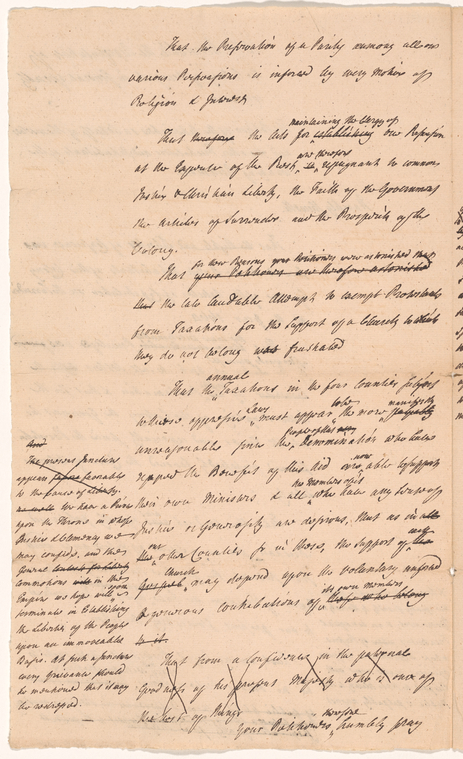 That the Preservation of a Parity among all our
various Professions is inforced by every Motive of
Religion & Interest
maintaining the Clergy of
That therefore the Acts for establishing one Profession
are therefore
at the Expence of the Rest, repugnant to common
Justice & Christian Liberty, the Faith of the Government
the Articles of Surrender and the Prosperity of the
Colony.
for these Reasons your Petitioners were astonished that
That your Petitioners are therefore astonished
that the late laudable Attempt to exempt Protestants
from Taxations for the Support of a Church to which
they do not belong was frustrated
annual
That the Taxations in the four Counties subject
to these oppressive Laws must appear the more
manifestly
unreasonable since the Denomination who have
now
reaped the Benefit of this Aid are able to support
the Members of it
their own Ministers & all who have any Sense of
Justice or Generosity are desirous, that as in all
the other Counties so in these, the Support of
Church may depend upon the voluntary unforced
its own members
& generous contributions of those who belong
to it.
That from a Confidence in the personal
Goodness of his present Majesty who is one of
the best of Kings
therefore
Your Petitioners humbly pray
And
The present juncture
appears favorable
to the cause of Liberty.
as well We have a Prince
upon the Throne in whose
Justice & Clemency we
may confide, and the
Commotions in the
Empire we hope will
terminate in Establishing
the Liberties of the People
upon an immoveable
Basis. At such a juncture
every Grievance should
be mentioned that it may
be redressed.